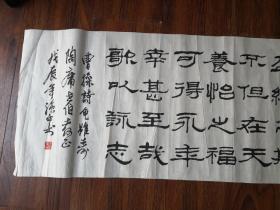 不但在天
養怡之福
可得永年
幸甚至哉
歌以詠志
曹操詩龜雖壽
陶庸老伯教正
戊辰年